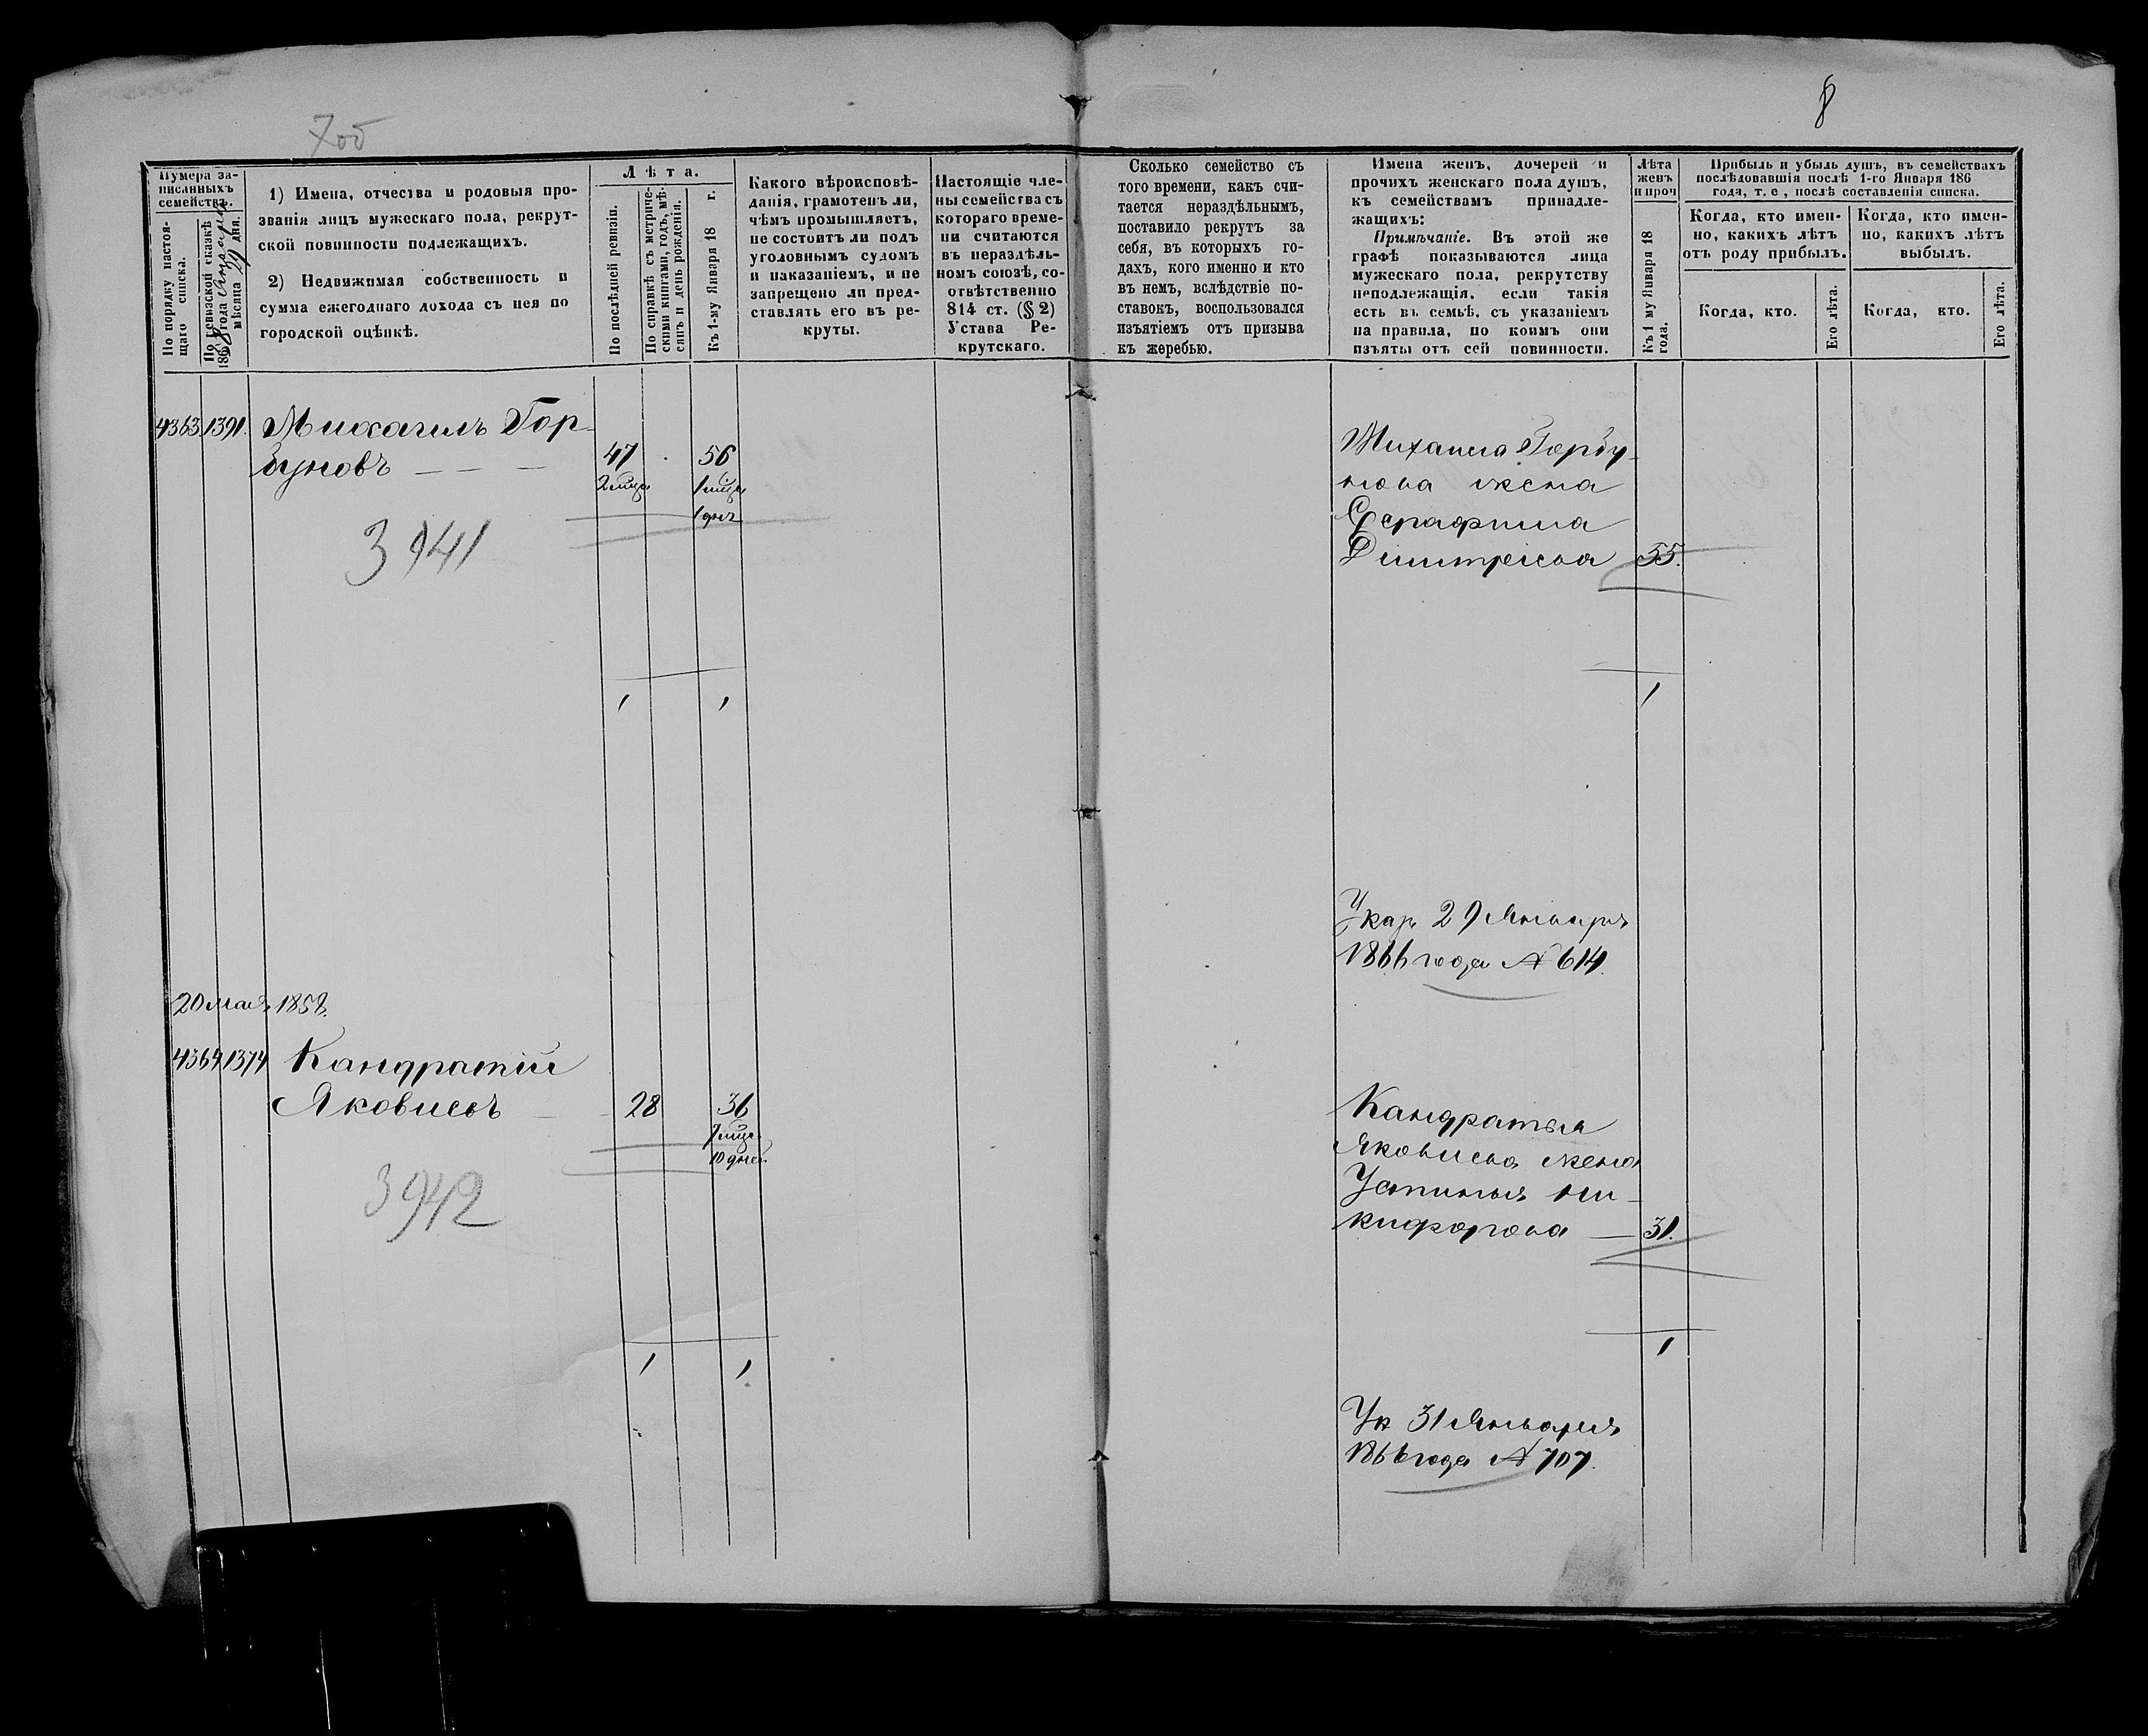 7об
8
Нумера за-
писанныхъ
семействъ.
По порядку настоя-
щаго списка.
По ревизской сказкѣ
1868 года
мѣсяца 29 дня.
1) Имена, отчества и родовыя про-
званія лицъ мужескаго пола, рекрут-
ской повинности подлежащихъ.
2) Недвижимая собственность и
сумма ежегоднаго дохода съ нея по
городской оцѣнкѣ.
Лѣта.
По послѣдней ревизіи.
По справкѣ съ метриче-
скими книгами, годъ, мѣ-
сяцъ и день рожденія.
Къ 1-му Января 18 г.
Какого вѣроисповѣ-
данія, грамотенъ ли,
чѣмъ промышляетъ,
не состоитъ ли подъ
уголовнымъ судомъ
и наказаніемъ, и не
запрещено ли пред-
ставлять его въ ре-
круты.
Настоящіе чле-
ны семейства съ
котораго време-
ни считаются
въ нераздѣль-
номъ союзѣ, со-
отвѣтственно
814 ст. (§ 2)
Устава Ре-
крутскаго.
Сколько семейство съ
того времени, какъ счи-
тается нераздѣльнымъ,
поставило рекрутъ за
себя, въ которыхъ го-
дахъ, кого именно и кто
въ немъ, вслѣдствіе по-
ставокъ, воспользовался
изъятіемъ отъ призыва
къ жеребью.
Имена женъ, дочерей и
прочихъ женскаго пола душъ,
къ семействамъ принадле-
жащихъ:
Примѣчаніе. Въ этой же
графѣ показываются лица
мужескаго пола, рекрутству
неподлежащія, если такія
есть въ семьѣ, съ указаніемъ
на правила, по коимъ они
изъяты отъ сей повинности.
Лѣта
женъ
и проч
Къ 1 му Января 18
года.
Прибыль и убыль душъ, въ семействахъ
послѣдовавшія послѣ 1-го Января 186
года, т. е, послѣ составленія списка.
Когда, кто имен-
но, какихъ лѣтъ
отъ роду прибылъ.
Когда, кто имен-
но, какихъ лѣтъ
выбылъ.
Когда, кто.
Его лѣта.
Когда, кто.
Его лѣта.
4363 1391. Михаилъ Гор-
буновъ — — — 47 56
2 мѣца 1 мѣца
1 днь
3941
Михаила Горбу-
нова жена
Серафима
Димитріева 55.
1 1 1
Указъ 29 Января
1866 года № 614.
20 мая 1858.
4364 1374 Кандратій
Яковлевъ — 28 36
7 мѣце.
10 дней
3942
Кандратья
Яковлева жена
Устинья Ни-
кифорова — 31.
1 1 1
Ук 31 Января
1866 года № 707.